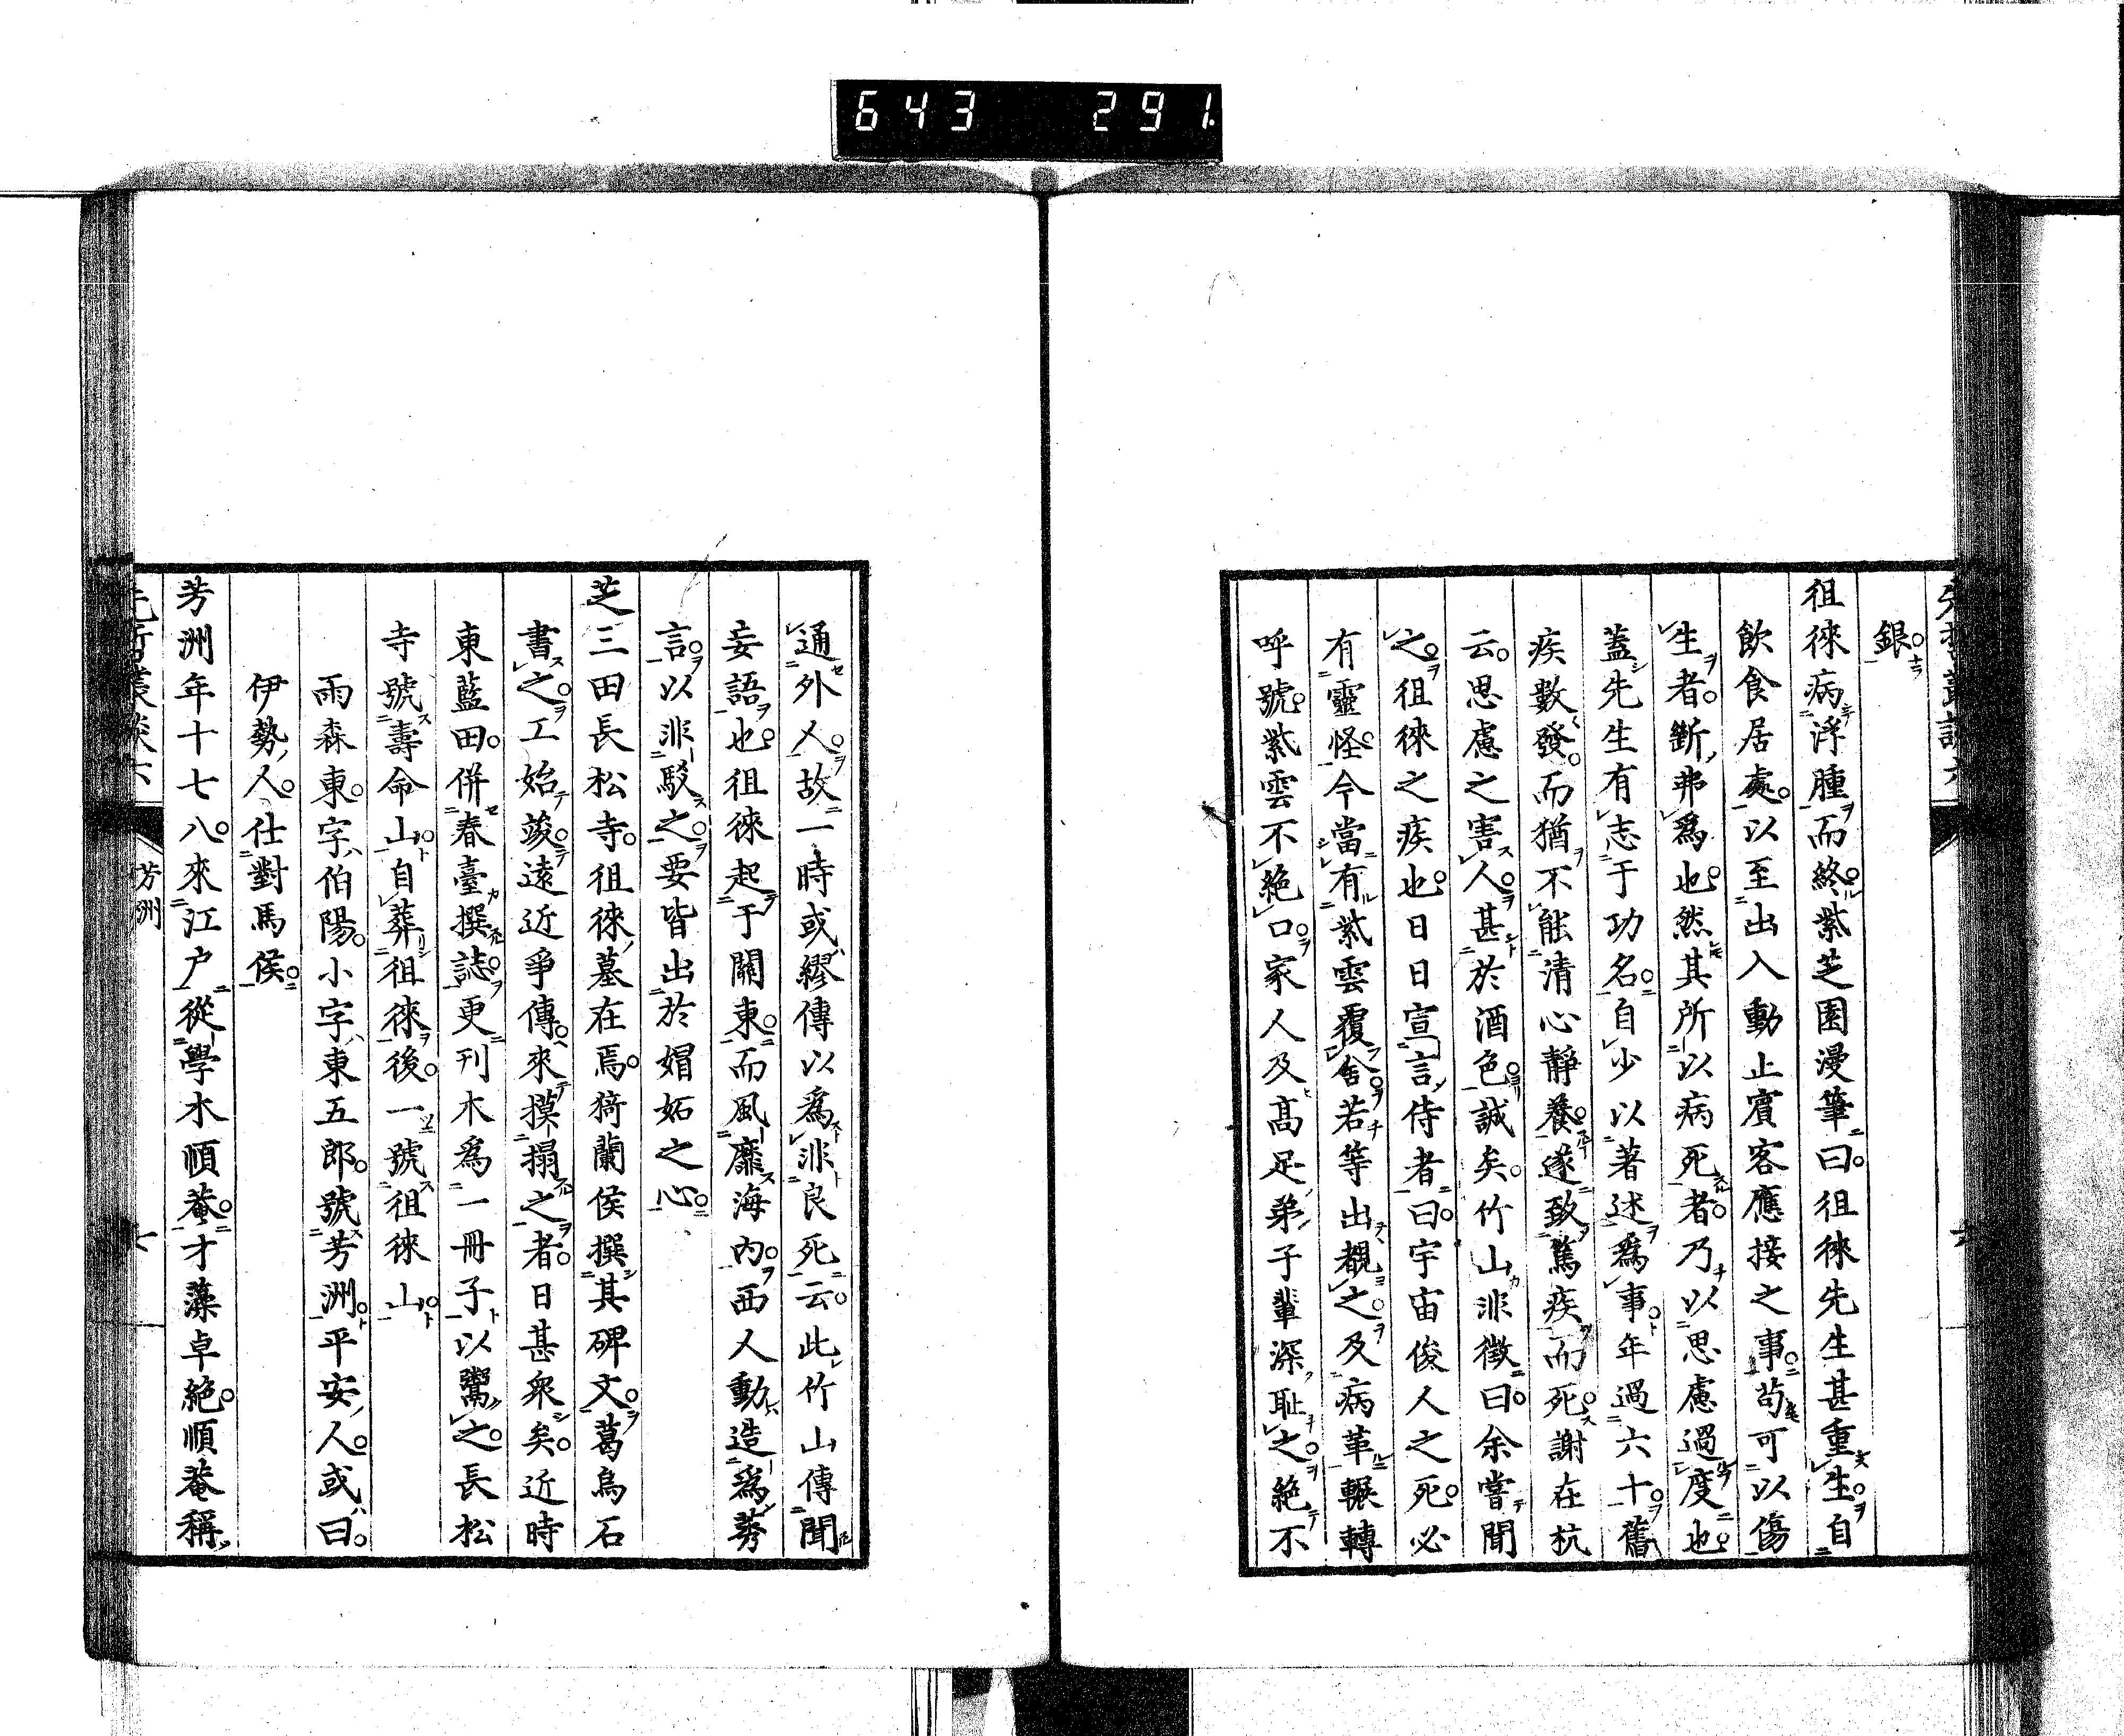 643 291
銀
徂徠病浮腫而終紫芝園漫筆曰徂徠先生甚重生自
飮食居處以至出入動止賓客應接之事茍可以傷
生者斷弗爲也然其所以病死者乃以思慮過度也
蓋先生有志于功名自少以著述爲事年過六十舊
疾數發而猶不能清心靜養遂致篤疾而死謝在杭
云思慮之害人甚於酒色誠矣竹山非徵曰余嘗聞
之徂徠之疾也日日宣言侍者曰宇宙俊人之死必
有靈怪今當有紫雲覆舍若等出覩之及病革輾轉
呼號紫雲不絕口家人及髙足弟子輩深恥之絕不
通外人故一時或繆傳以爲非良死云此竹山傳聞
妄語也徂徠起于關東而風靡海內西人動造爲莠
言以非駁之要皆出於媢妬之心
芝三田長松寺徂徠墓在焉猗蘭侯撰其碑文葛烏石
書之工始竣遠近爭傳來摸搨之者日甚衆矣近時
東藍田併春臺撰誌更刊木爲一冊子以鬻之長松
寺號壽命山自葬徂徠後一號徂徠山
雨森東字伯陽小字東五郎號芳洲平安人或曰
伊勢人仕對馬侯
芳洲年十七八來江户從學木順菴才藻卓絕順菴稱
芳洲